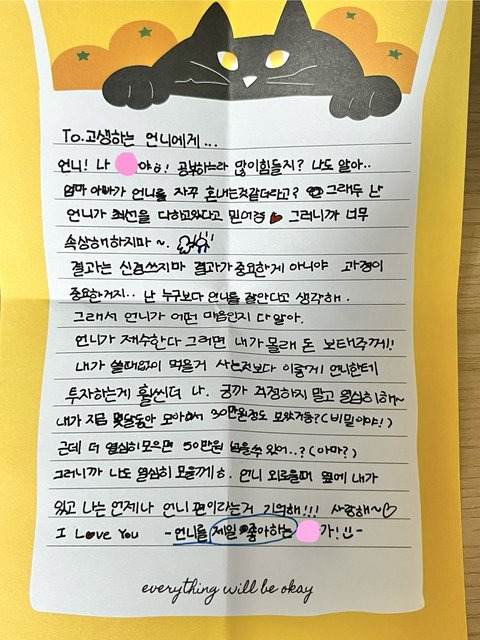 To.고생하는 언니에게...
언니! 나 야ö! 공부하느라 많이힘들지? 나도 알아..
엄마 아빠가 언니를 자꾸 혼내는것같더라고? 그래두 난
언니가 최선을 다하고있다고 믿어 그러니까 너무
속상해하지마~.
결과는 신경쓰지마 결과가 중요한게 아니야 과정이
중요한거지.. 난 누구보다 언니를 잘안다고 생각해.
그래서 언니가 어떤 마음인지 다 알아.
언니가 재수한다 그러면 내가 몰래 돈 보태주께!
내가 쓸때없이 먹을거 사는것보다 이렇게 언니한테
투자하는게 훨씬더 나. 긍까 걱정하지 말고 열심히해~
내가 지금 몇달동안 모아서 30만원정도 모았거등?(비밀이야!)
근데 더 열심히모으면 50만원 넘을수 있어..?(아마?)
그러니까 나도 열심히 모을께ö. 언니 외로울때 옆에 내가
있고 나는 언제나 언니 편이라는거 기억해!!! 사랑해~♡
I Love You -언니를 제일 좋아하는 가!-
everything will be okay